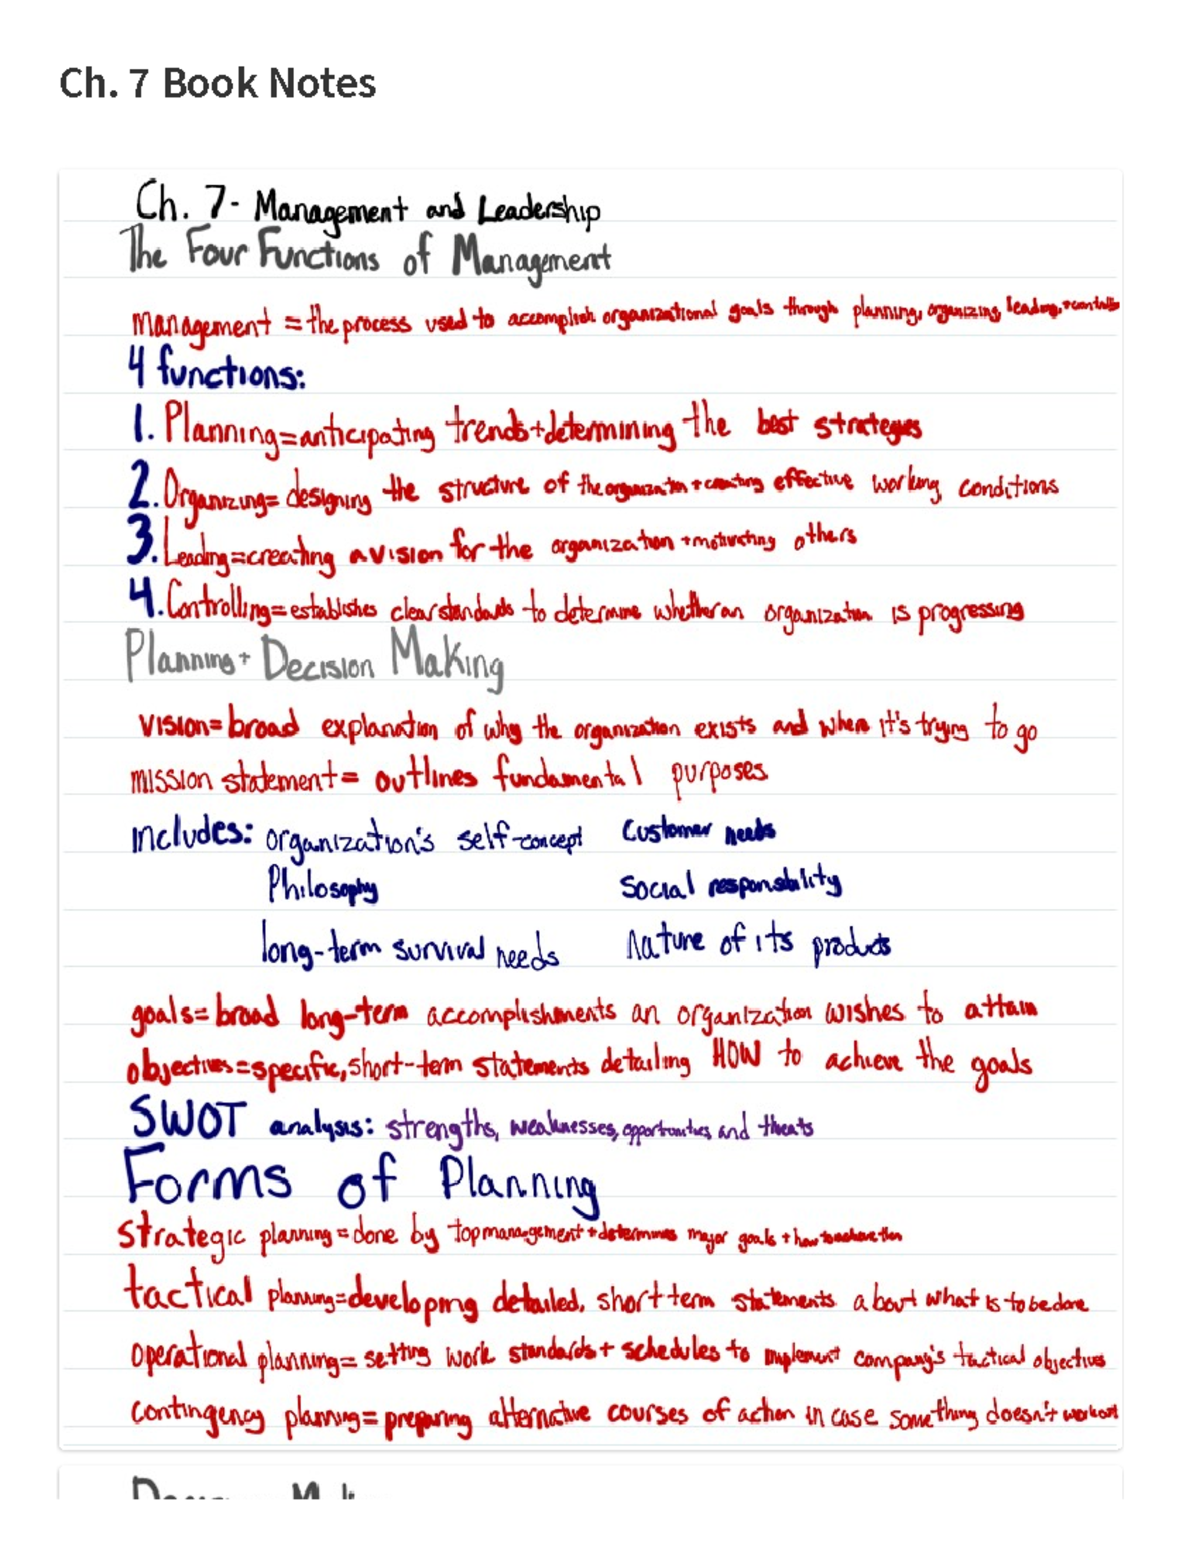 Ch. 7 Book Notes
Ch. 7- Management and Leadership
The Four Functions of Management
management = the process used to accomplish organizational goals through planning, organizing, leading, + controlling
4 functions:
1. Planning=anticipating trends+determining the best strategies
2. Organizing= designing the structure of the organization + creating effective working conditions
3. Leading=creating a vision for the organization +motivating others
4. Controlling=establishes clear standards to determine whether an organization is progressing
Planning+ Decision Making
vision= broad explanation of why the organization exists and where it's trying to go
mission statement= outlines fundamental purposes
includes: organization's self-concept Customer needs
Philosophy Social responsibility
long-term survival needs nature of its products
goals= broad long-term accomplishments an organization wishes to attain
objectives=specific, short-term statements detailing HOW to achieve the goals
SWOT analysis: strengths, weaknesses, opportunities and threats
Forms of Planning
strategic planning=done by top management+determines major goals + how to achieve them
tactical planning=developing detailed, short term statements about what is to be done
operational planning= setting work standards+ schedules to implement company's tactical objectives
contingency planning= preparing alternative courses of action in case something doesn't workout